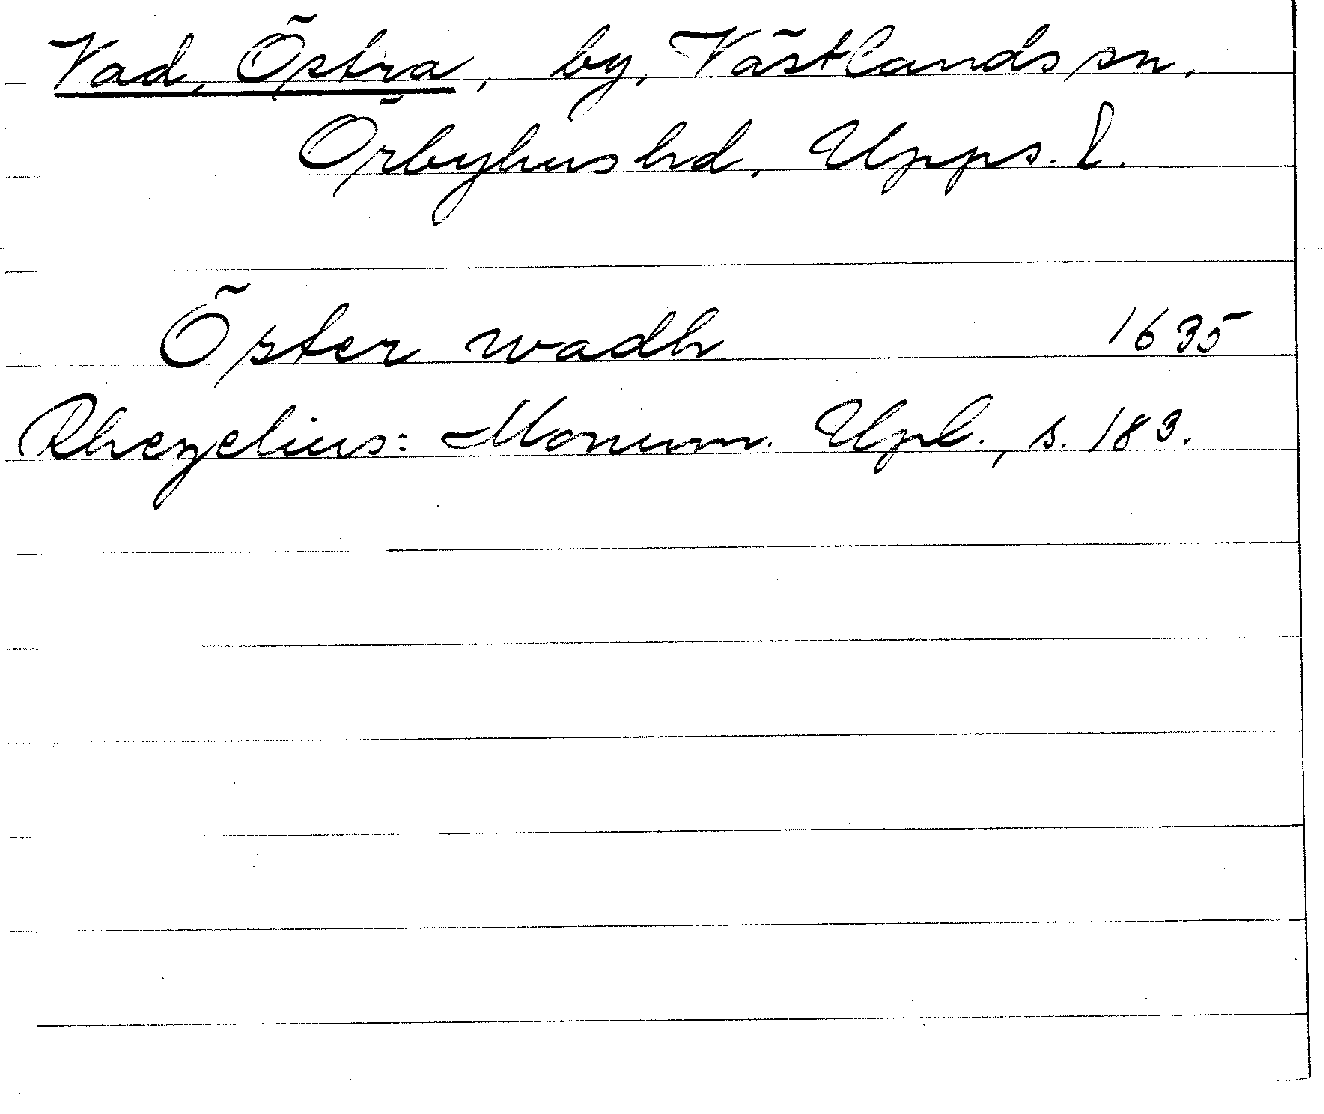 Vad, Östra, by, Västlands sn.
Örbyhus hd, Upps. l.
Öster wadh 1635
Rhezelius: Monum. Upl., s. 183.